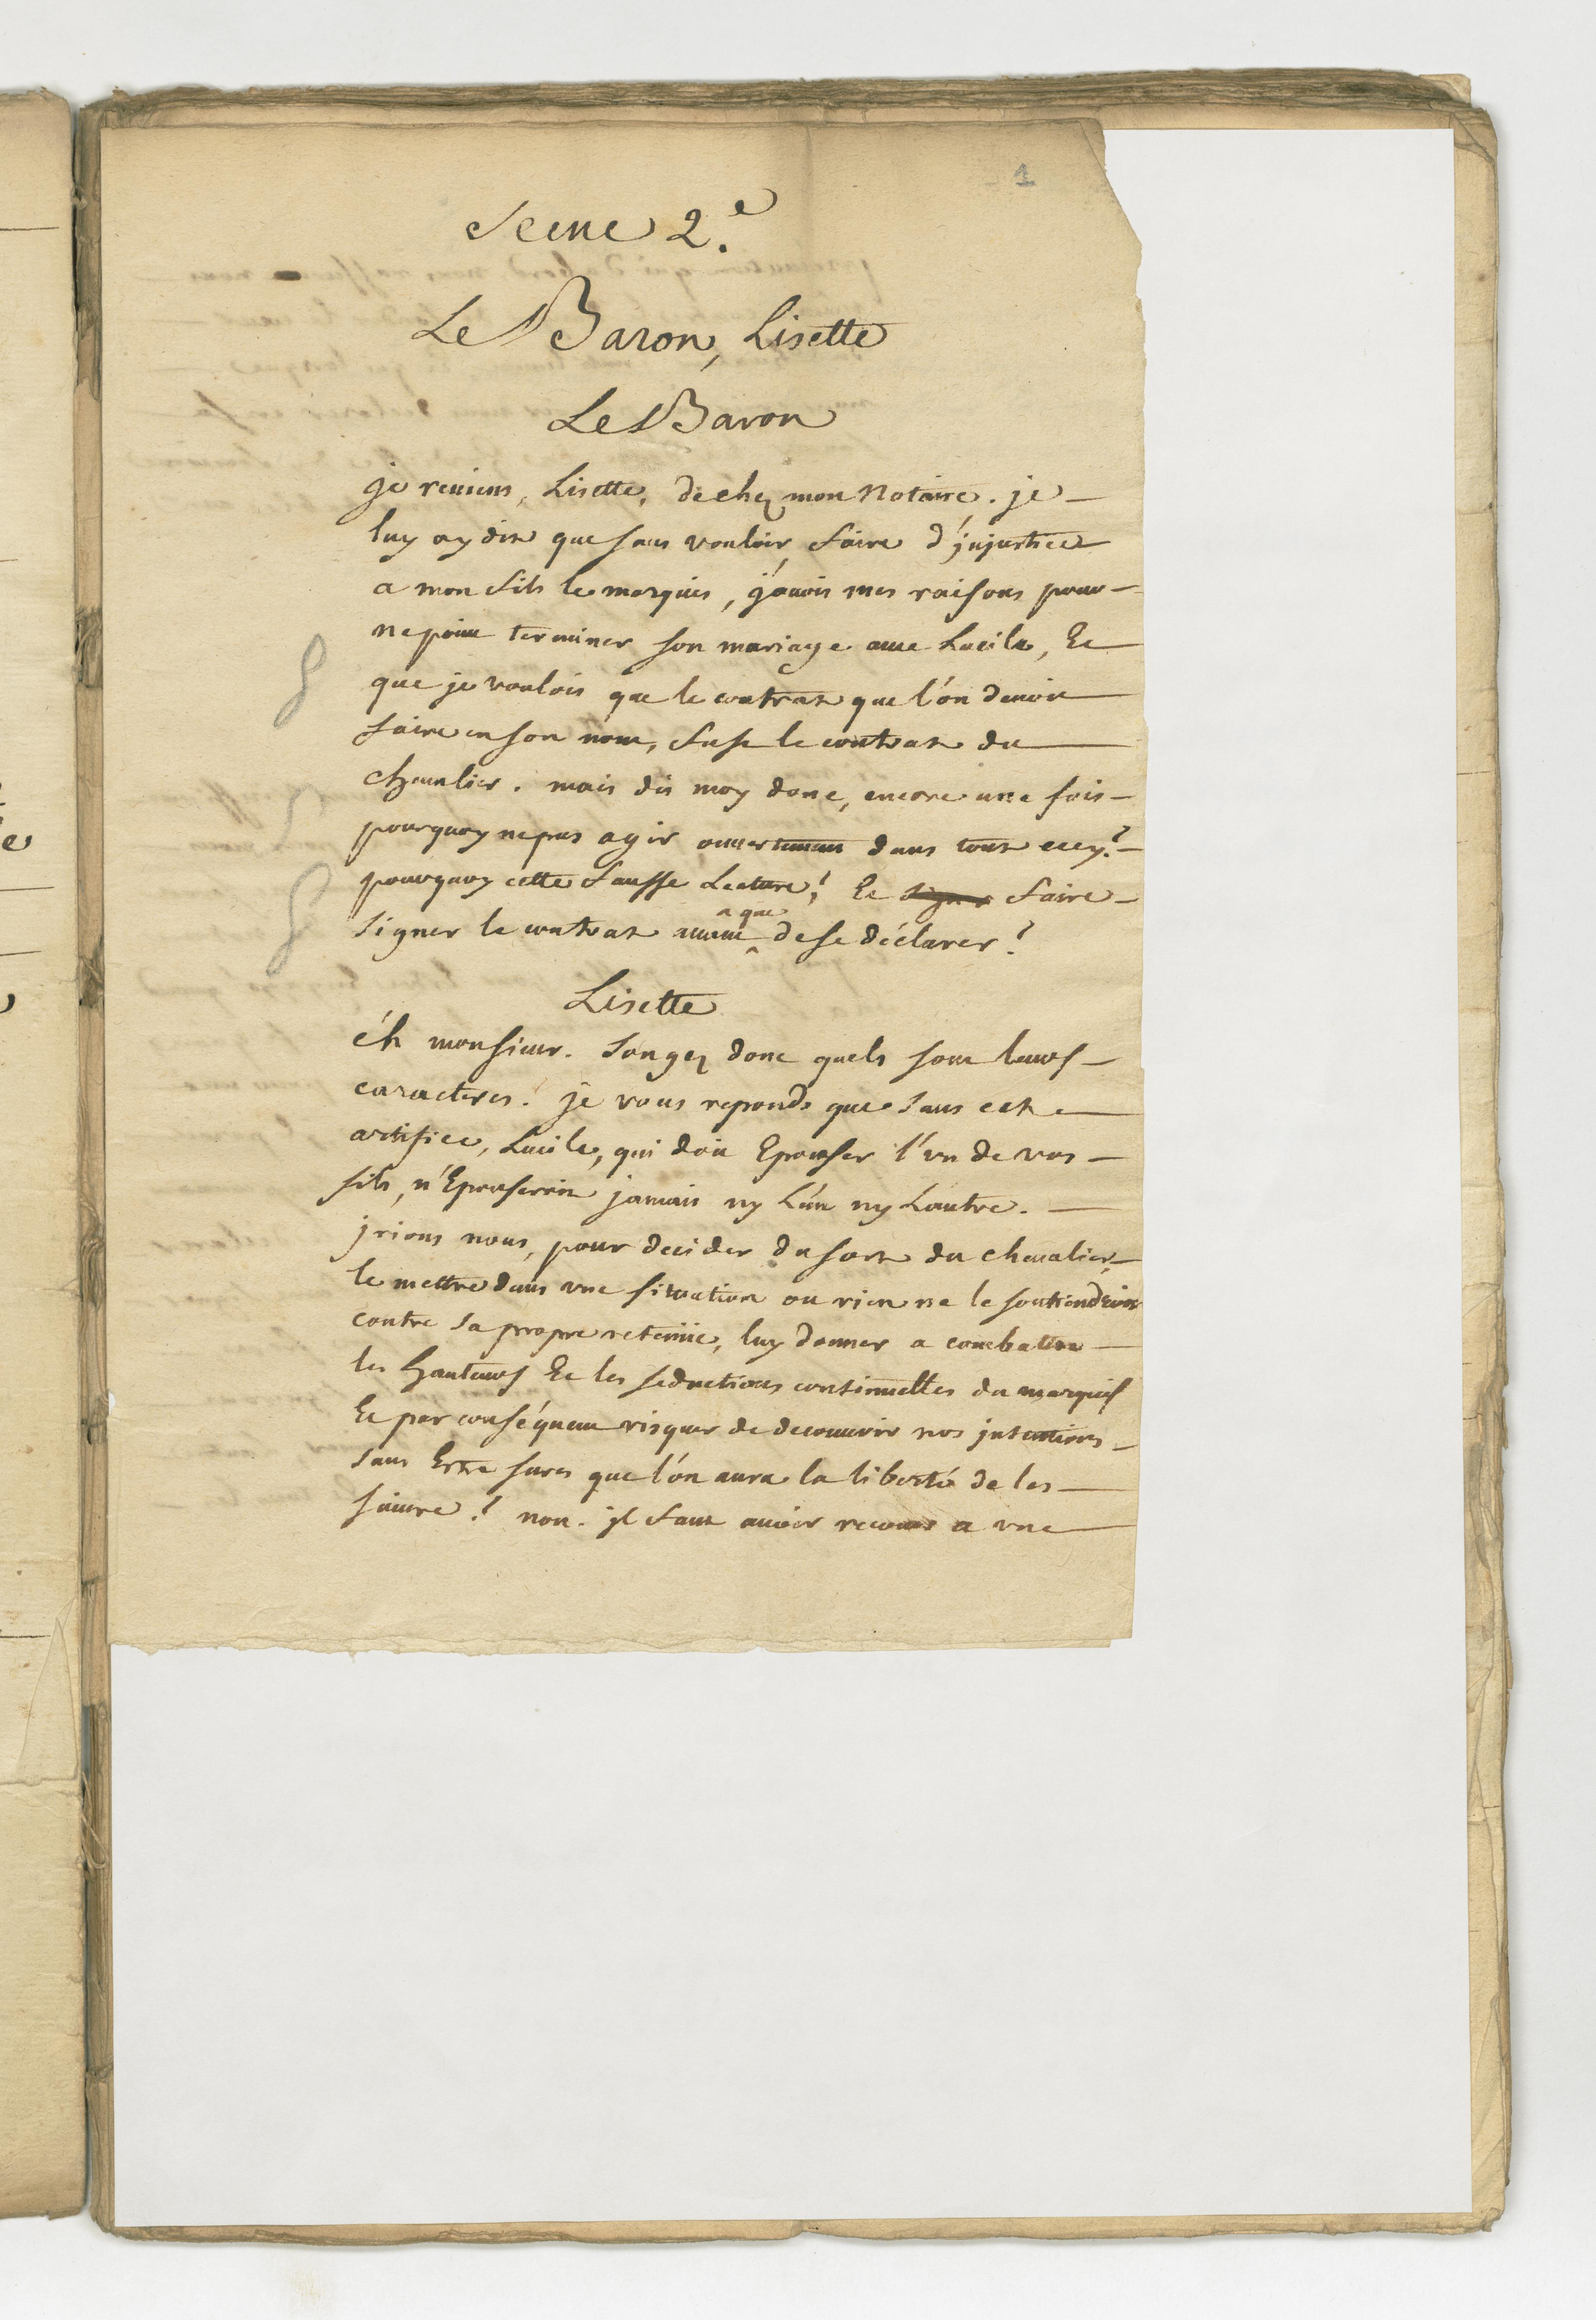 1
Scene 2.e
Le Baron, Lisette
Le Baron
je reviens, Lisette, de chez mon Notaire. je
luy ay dit que sans vouloir faire d'jnjustice
a mon fils le marquis, j'avois mes raisons pour
ne point terminer son mariage avec Lucile, Et
que je voulois que le contrat que l'on devoit
faire en son nom, fust le contrat du
chevalier. mais dis moy donc, encore une fois
pourquoy ne pas agir ouvertement dans tout cecy?
pourquoy cette fausse Lecture? Et signer faire
signer le contrat avant a que de se déclarer?
Lisette
éh monsieur. Songez donc quels sont leurs
caracteres. je vous reponds que sans cet
artifice, Lucile, qui doit Epouser l'vn de vos
fils, n'Epouseroit jamais ny L'un ny Lautre.
jrions nous, pour decider du sort du chevalier,
le mettre dans vne situation ou rien ne le soutiendroit
contre sa propre retenüe, luy donner a combattre
les hauteurs Et les seductions continuelles du marquis
Et par conséquent risquer de decouvrir nos jntentions
sans Estre sures que l'on aura la liberté de les
suivre? non. jl faut avoir recours a vne